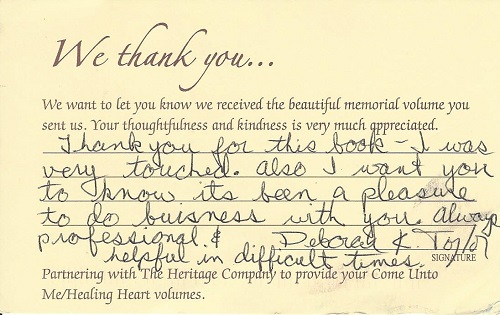 We thank you...
We want to let you know we received the beautiful memorial volume you
sent us. Your thoughtfulness and kindness is very much appreciated.
Thank you for this book - I was
very touched. Also I want you
to know its been a pleasure
to do buisness with you. Always
professional & Deborah K. Taylor
SIGNATURE
helpful in difficult times.
Partnering with The Heritage Company to provide your Come Unto
Me/Healing Heart volumes.